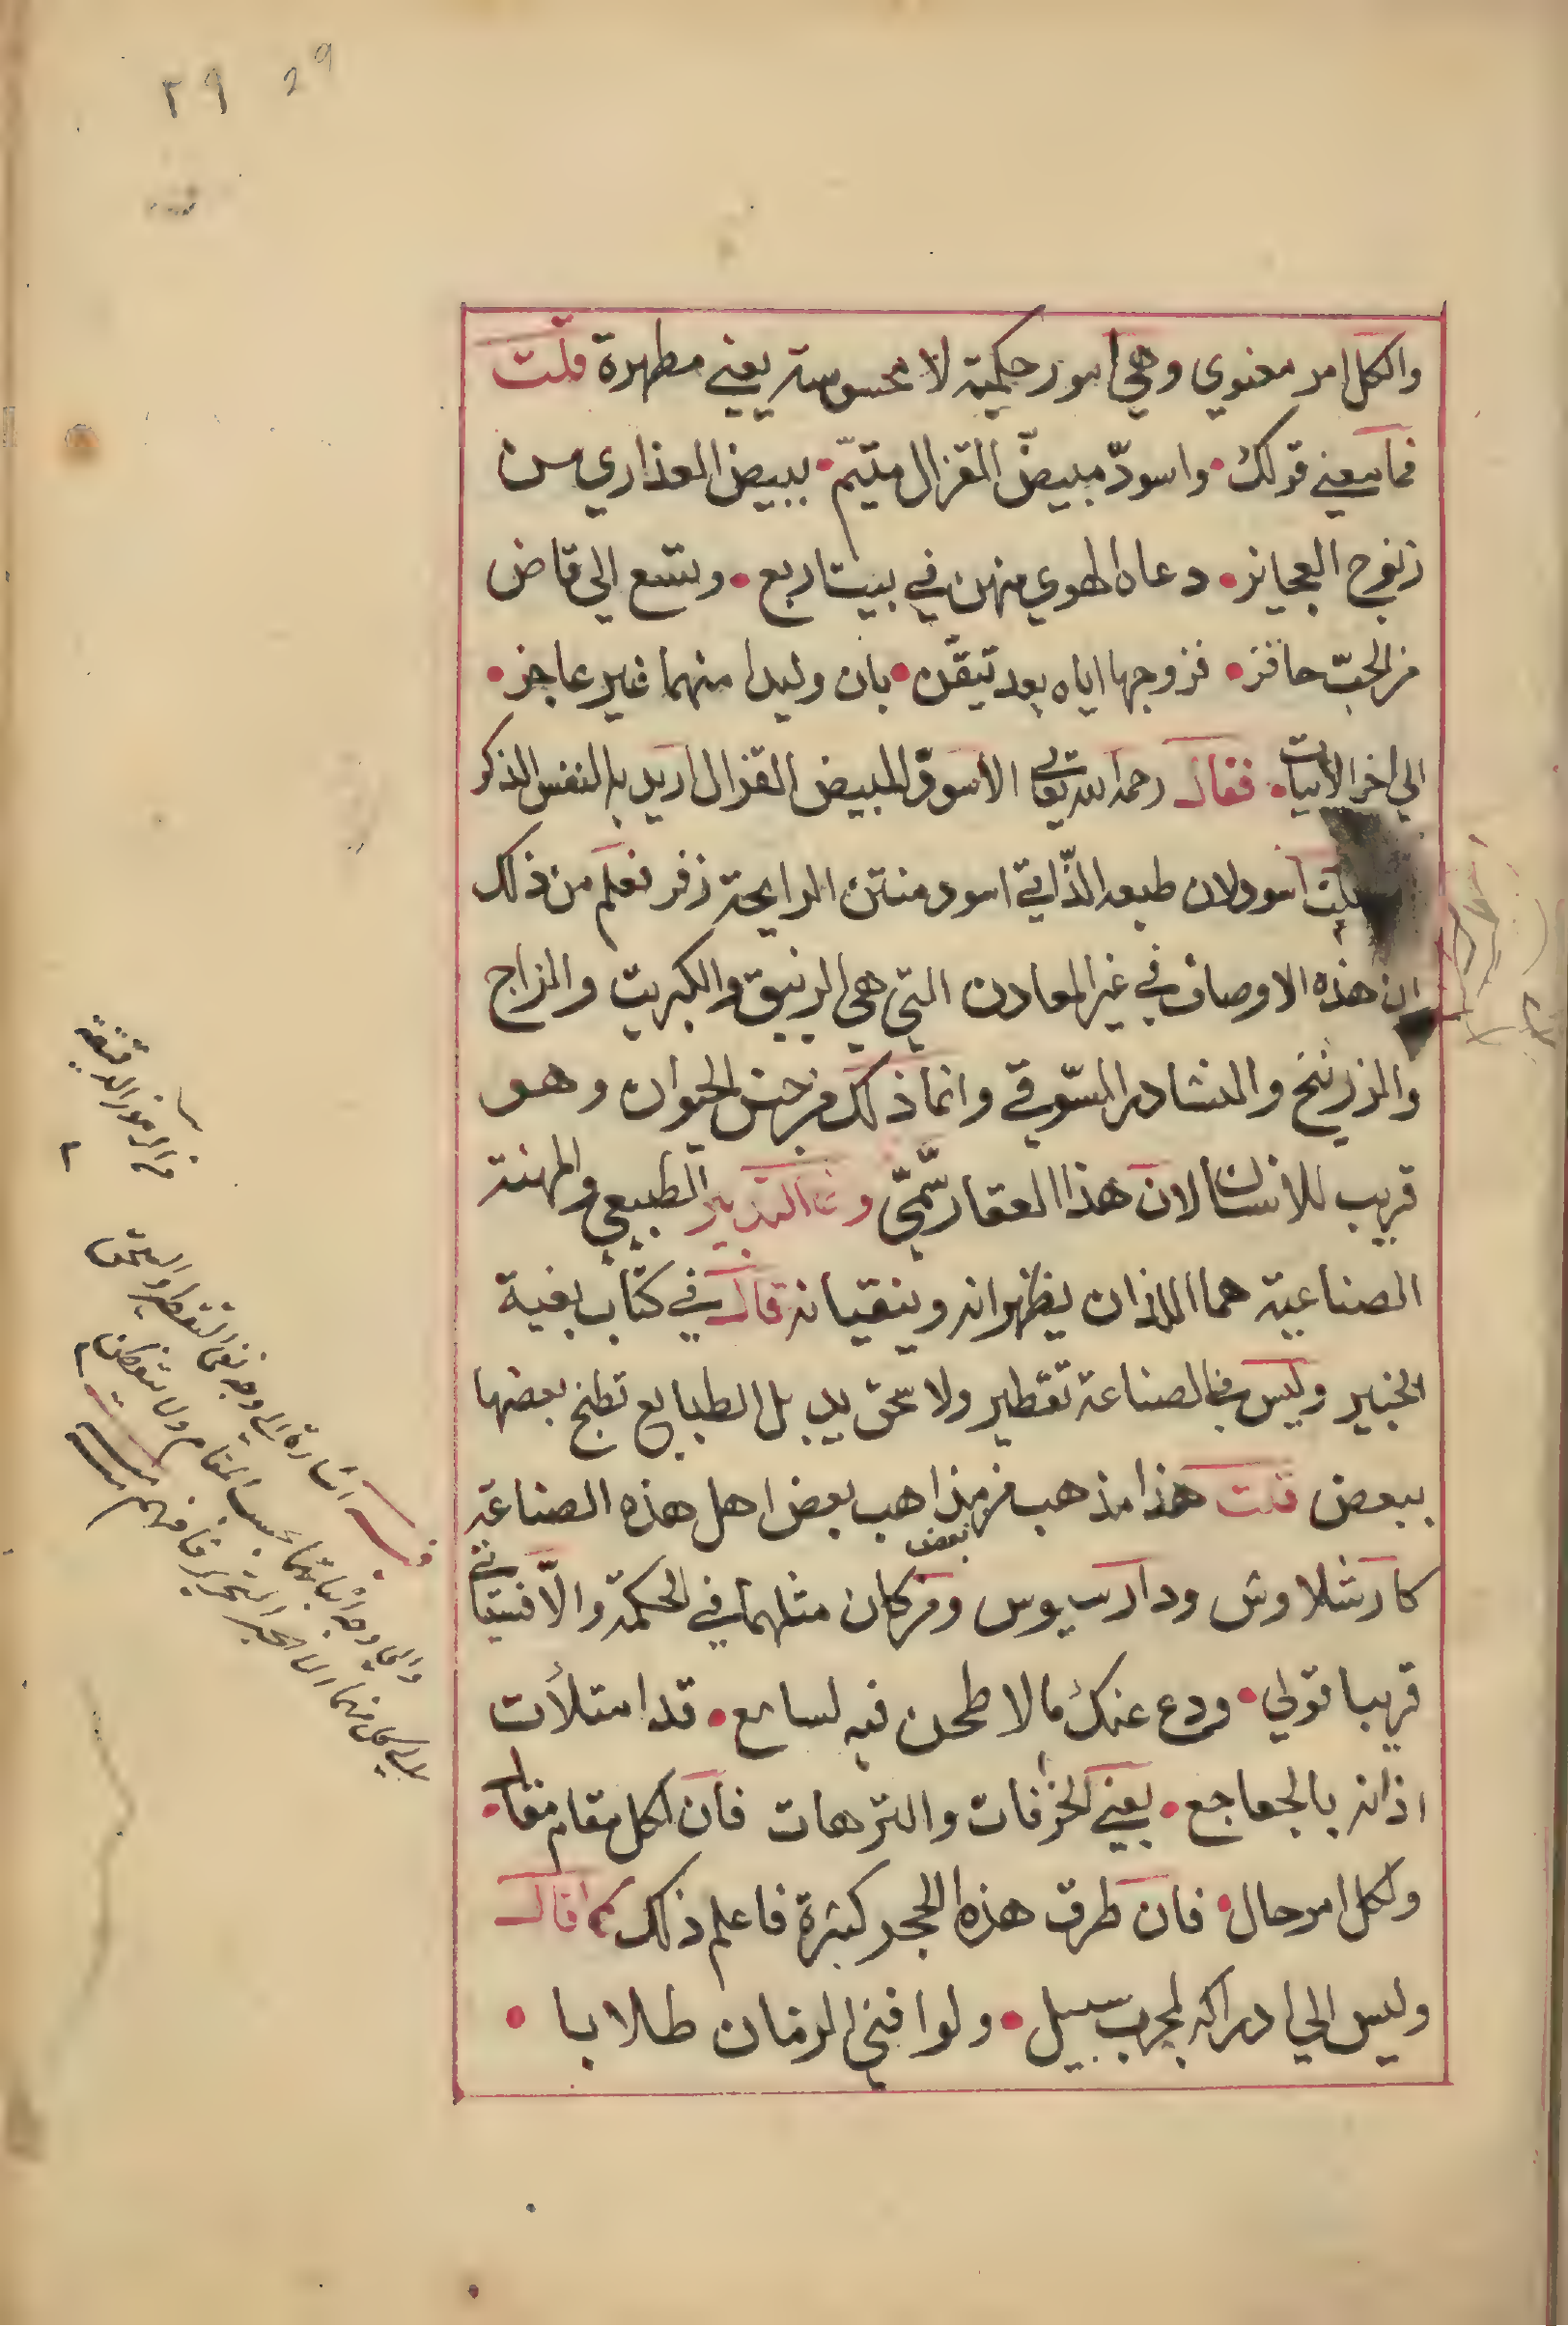 ٢٩ 29
والكل امر معنوي وهي امور حكمية لا محسوسة يعني مطهرة قلت
فما معني قولك • واسودّ مبيضّ القزال متيّم • ببيض العذاري من
زنوج العجايز • دعاه الهوي منهن في بيت اربع • وتسع الي قاض
من الحبّ حافز • فزوجها اياه بعد تيقّن • بان وليدا منهما غير عاجز •
الي اخر الابيات • فقال رحمه الله تعالى الاسود المبيض القزال اريد به النفس الذكر
اسود لان طبعه الذّاتي اسود منتن الرايحة زفر فعلم من ذلك
ان هذه الاوصاف في غير المعادن التي هي الزيبق والكبريت والزاج
والزرنيخ والنشادر السّوقي وانما ذلك من جنس الحيوان وهو
قريب للانسان لان هذا العقار سمّيّ التدبير الطبيعي والمهنة
الصناعية هما اللذان يظهرانه وينقيانه قال في كتاب بغية
الخبير وليس في الصناعة تقطير ولا سحق يد بل الطبايع تطبخ بعضها
ببعض قلت هذا مذهب من مذاهب بعض اهل هذه الصناعة
كارشلاوش ودارسيوس ومن كان مثلهما في الحكمة والّا فسياتي
بعض
قريبا قولي • ودع عنك مالا طحن فيه لسامع • قد امتلأت
اذانه بالجعاجع • يعني الخرفات والترهات فان لكل مقام مقال •
ولكل امر حال • فان طرق هذه الحجر كثيرة فاعلم ذلك كما قال
وليس الي ادراكه لمجرب سبيل • ولو افني الزمان طلابا •
من الرموز الدقيقة
فيه اشارة الي وجه نفي التقطير والسحق
والي وجه اثباتهما بحسب المقام